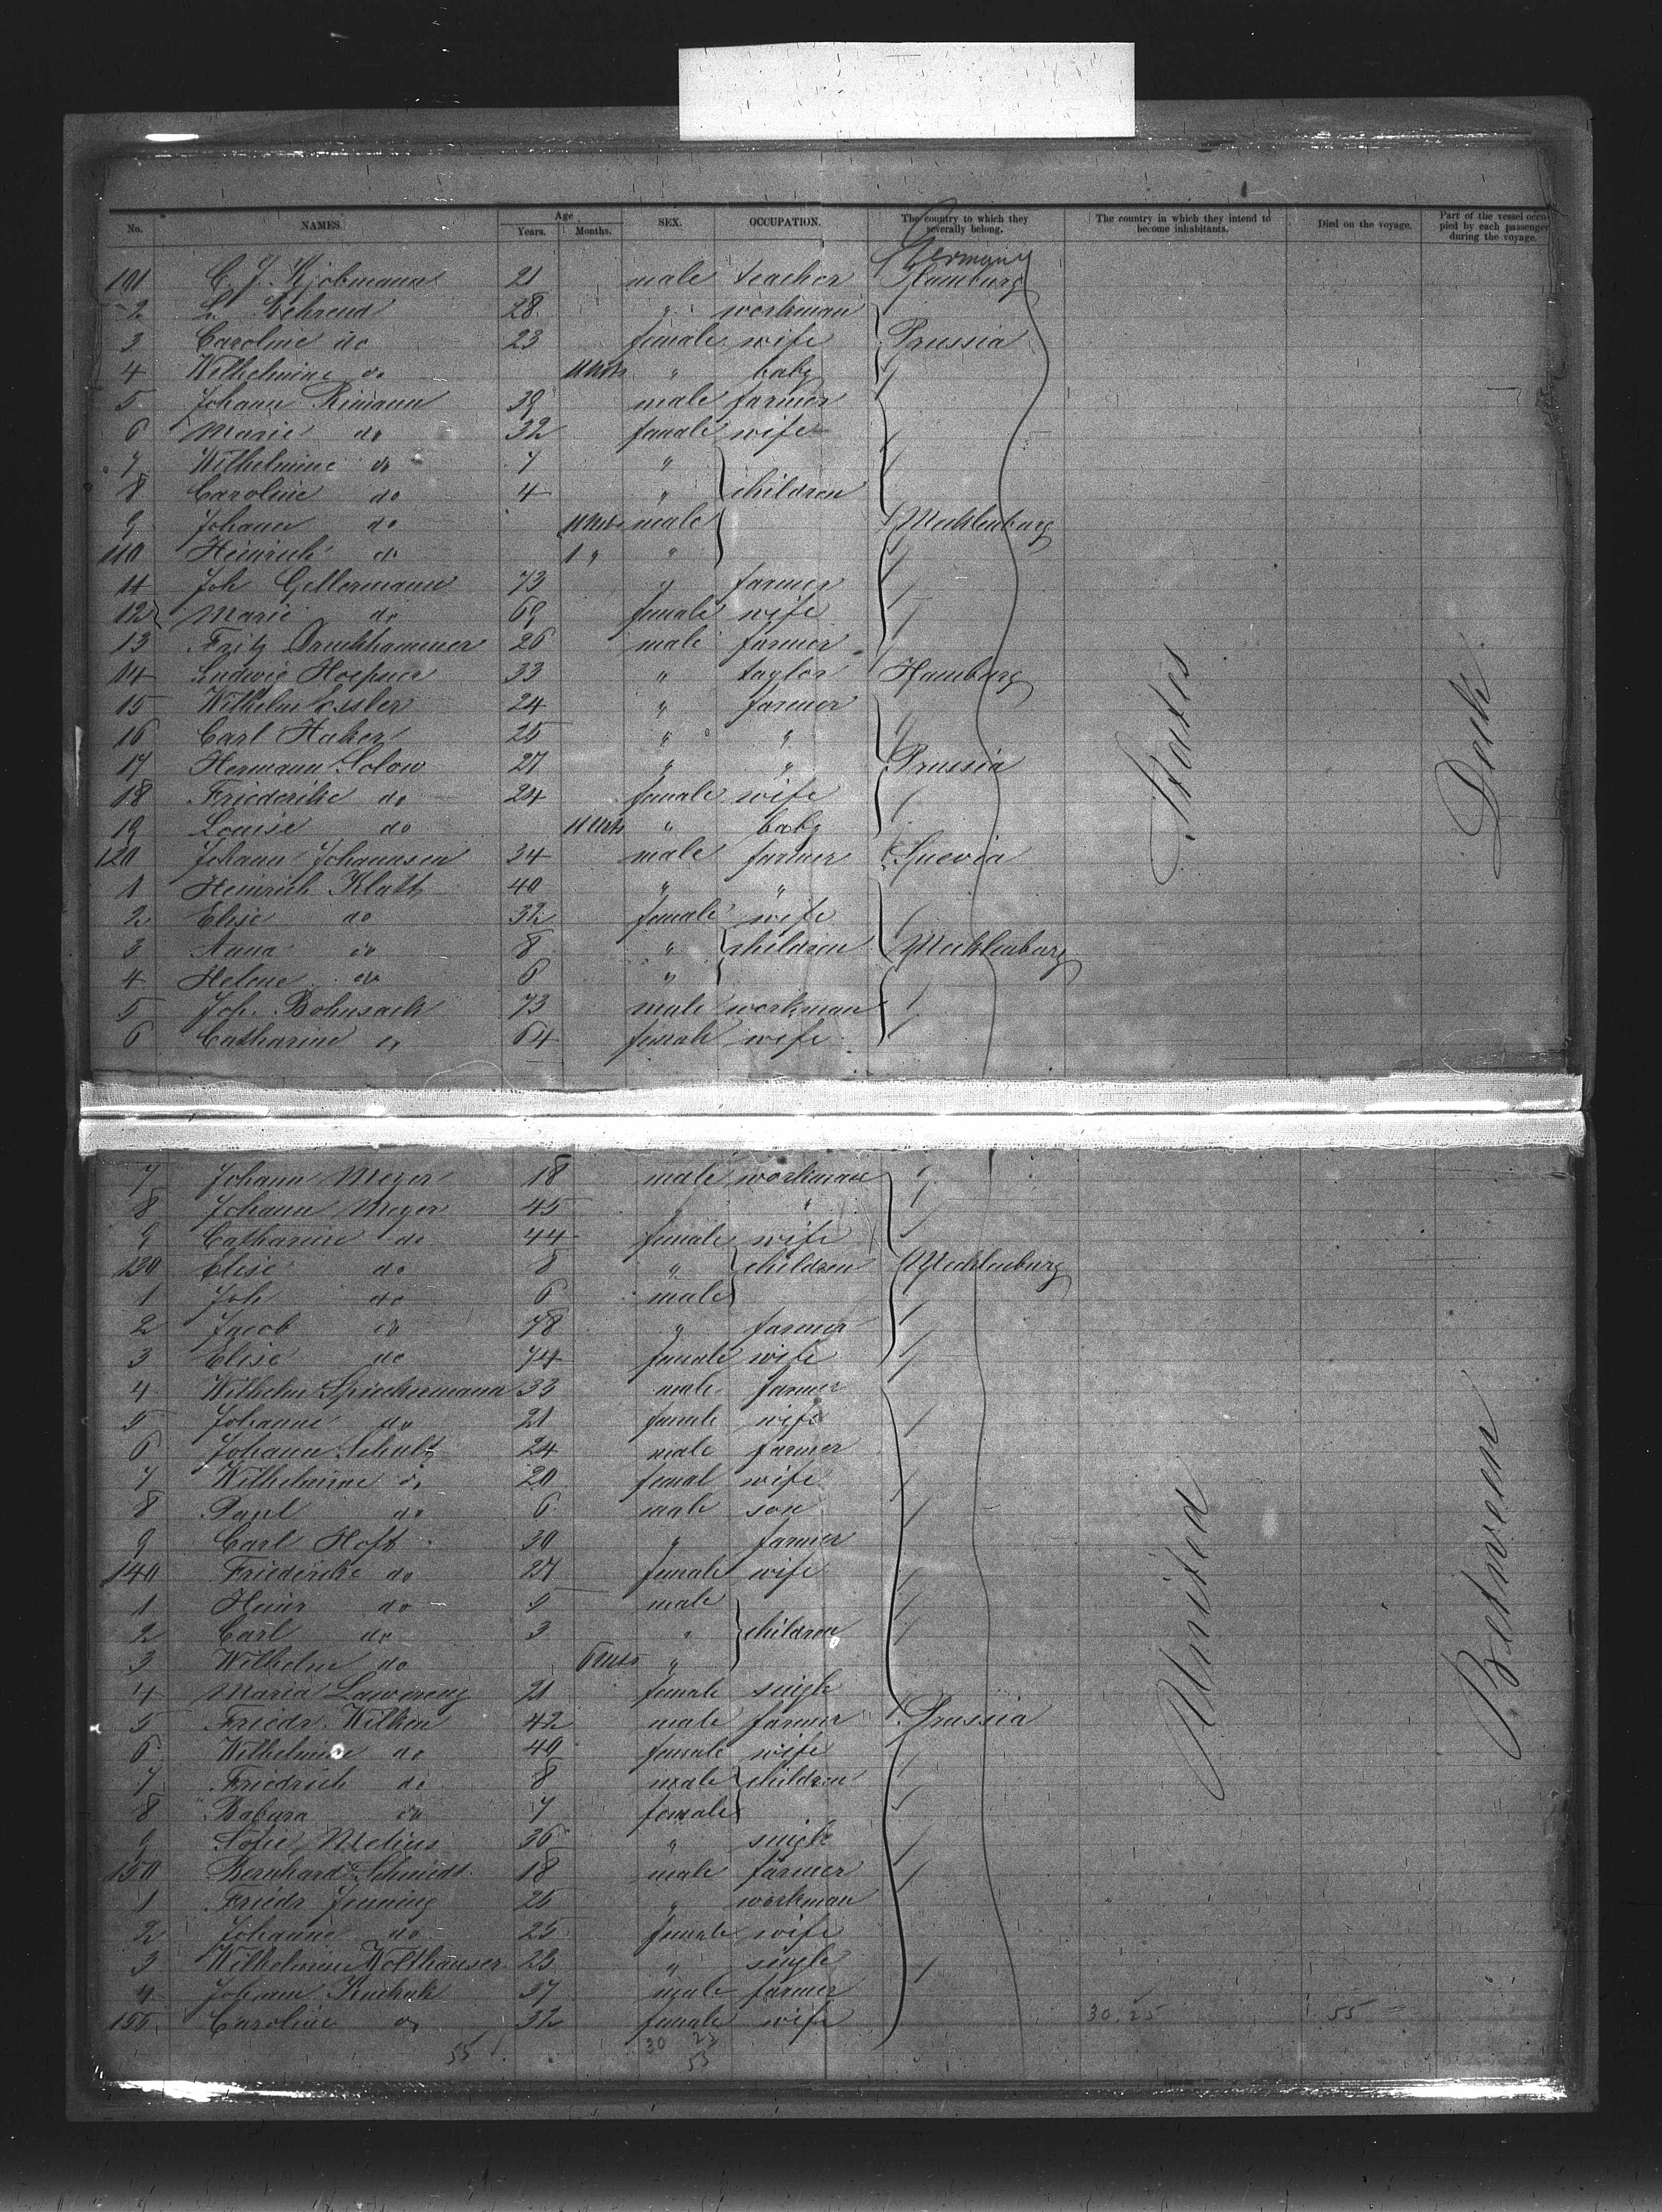 No. NAMES. Age Years. Months. SEX. OCCUPATION. The country to which they severally belong. The country in which they intend to become inhabitants. Died on the voyage. Part of the vessel occupied by each passenger during the voyage.
Germany
101 C. J. 21 male teacher Hamburg
2 L. Behrend 28 " workman
3 Caroline do 23 female wife Prussia
4 Wilhelmine do 11 Mts " baby
5 Johann Rimann 39 male farmer
6 Marie do 32 female wife
7 Wilhelmine do 7 "
8 Caroline do 4 " children
9 Johann do 11 Mts male Mecklenburg
110 Heinrich do 1 " "
11 Joh Gellermann 73 " farmer
12 Marie do 69 female wife
13 Fritz 26 male farmer
14 Ludwig Hoepner 33 " taylor Hamburg
15 Wilhelm 24 " farmer
16 Carl Huker 25 " "
17 Hermann Golow 27 " " Prussia
18 Friederike do 24 female wife
19 Louise do 11 Mts " baby
120 Johann Johannsen 24 male farmer
1 Heinrich Klatt 40 " "
2 Elise do 32 female wife
3 Anna do 8 " children Mecklenburg
4 Helene do 6 "
5 Joh. Bohnsack 73 male workman
6 Catharine do 64 female wife
States
Deck
7 Johann Meyer 18 male workman
8 Johann Meyer 45 " "
9 Catharine do 44 female wife
130 Elise do 8 " children Mecklenburg
1 Joh do 6 male
2 Jacob do 78 " farmer
3 Elise do 74 female wife
4 Wilhelm Spieckermann 33 male farmer
5 Johanne do 21 female wife
6 Johann Schultz 24 male farmer
7 Wilhelmine do 20 femal wife
8 Paul do 6 male son
9 Carl Hoft 30 " farmer
140 Friederike do 27 female wife
1 Heinr do male
2 Carl do 3 " children
3 Wilhelm do 6 Mts "
4 Maria 21 female single
5 Friedr. Wilken 42 male farmer Prussia
6 Wilhelmine do 40 female wife
7 Friedrich do 8 male children
8 Babara do 7 female
9 Sofie 36 " single
150 Bernhard Schmidt 18 male farmer
1 Friedr Jenning 25 " workman
2 Johanne do 25 female wife
3 Wilhelmine Wolthauser 23 " single
4 Johann 37 male farmer
155 Caroline do 32 female wife 30.25 55
55 30 55
United
Between